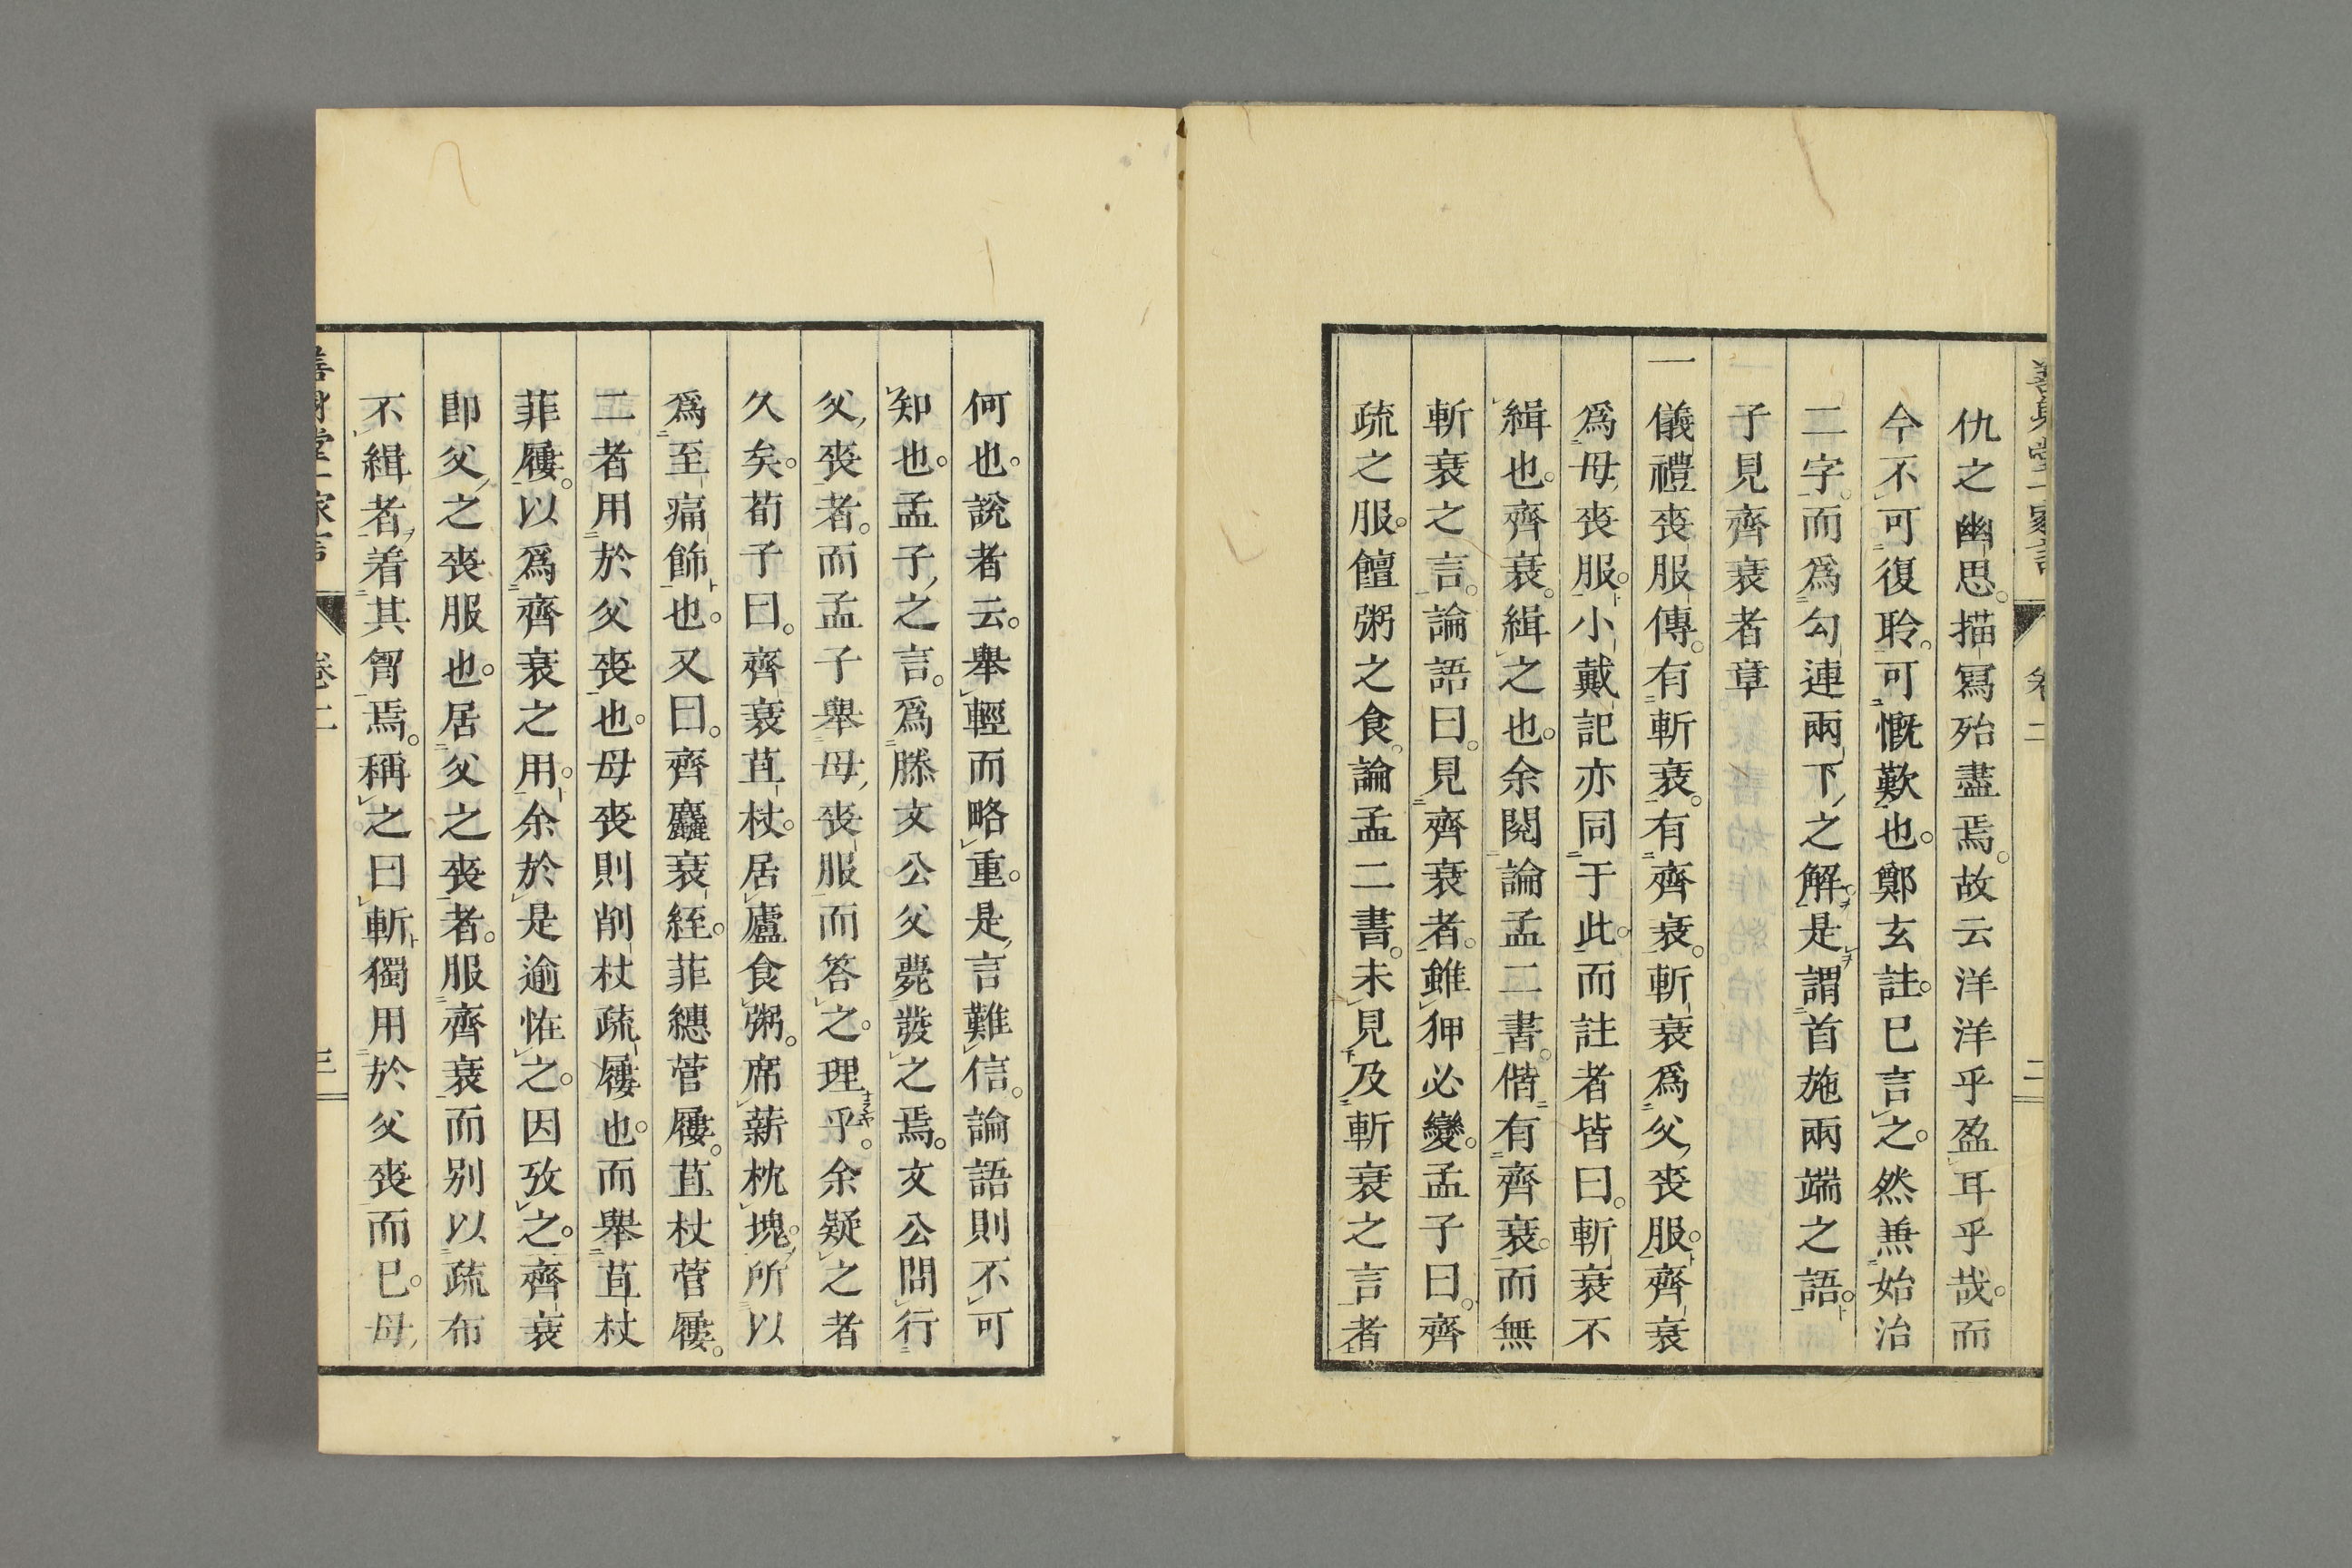 仇之幽思。描寫殆盡焉。故云洋洋乎盈耳乎哉。而
今不可復聆。可慨歎也。鄭玄註。已言之。然無始治
二字。而爲勾連兩下之解。是謂首施兩端之語。
子見齊衰者章
一儀禮喪服傳。有斬衰。有齊衰。斬衰爲父喪服。齊衰
爲母喪服。小戴記亦同于此。而註者皆曰。斬衰不
緝也。齊衰。緝之也。余閱論孟二書。偕有齊衰。而無
斬衰之言。論語曰。見齊衰者。雖狎必變。孟子曰。齊
疏之服。饘粥之食。論孟二書。未見及斬衰之言者
何也。說者云。舉輕而略重。是言難信。論語則不可
知也。孟子之言。爲滕文公父薨發之焉。文公問行
父喪者。而孟子舉母喪服而答之。理乎。余疑之者
久矣。荀子曰。齊衰苴杖。居廬食粥。席薪枕塊。所以
爲至痛飾也。又曰。齊麤衰絰。菲繐菅屨。苴杖菅屨。
二者用於父喪也。母喪則削杖疏屨也。而舉苴杖
菲屨。以爲齊衰之用。余於是逾恠之。因攷之。齊衰
卽父之喪服也。居父之喪者。服齊衰而別以疏布
不緝者着其胷焉。稱之曰斬。獨用於父喪而已。母
卷二
二
卷二
三